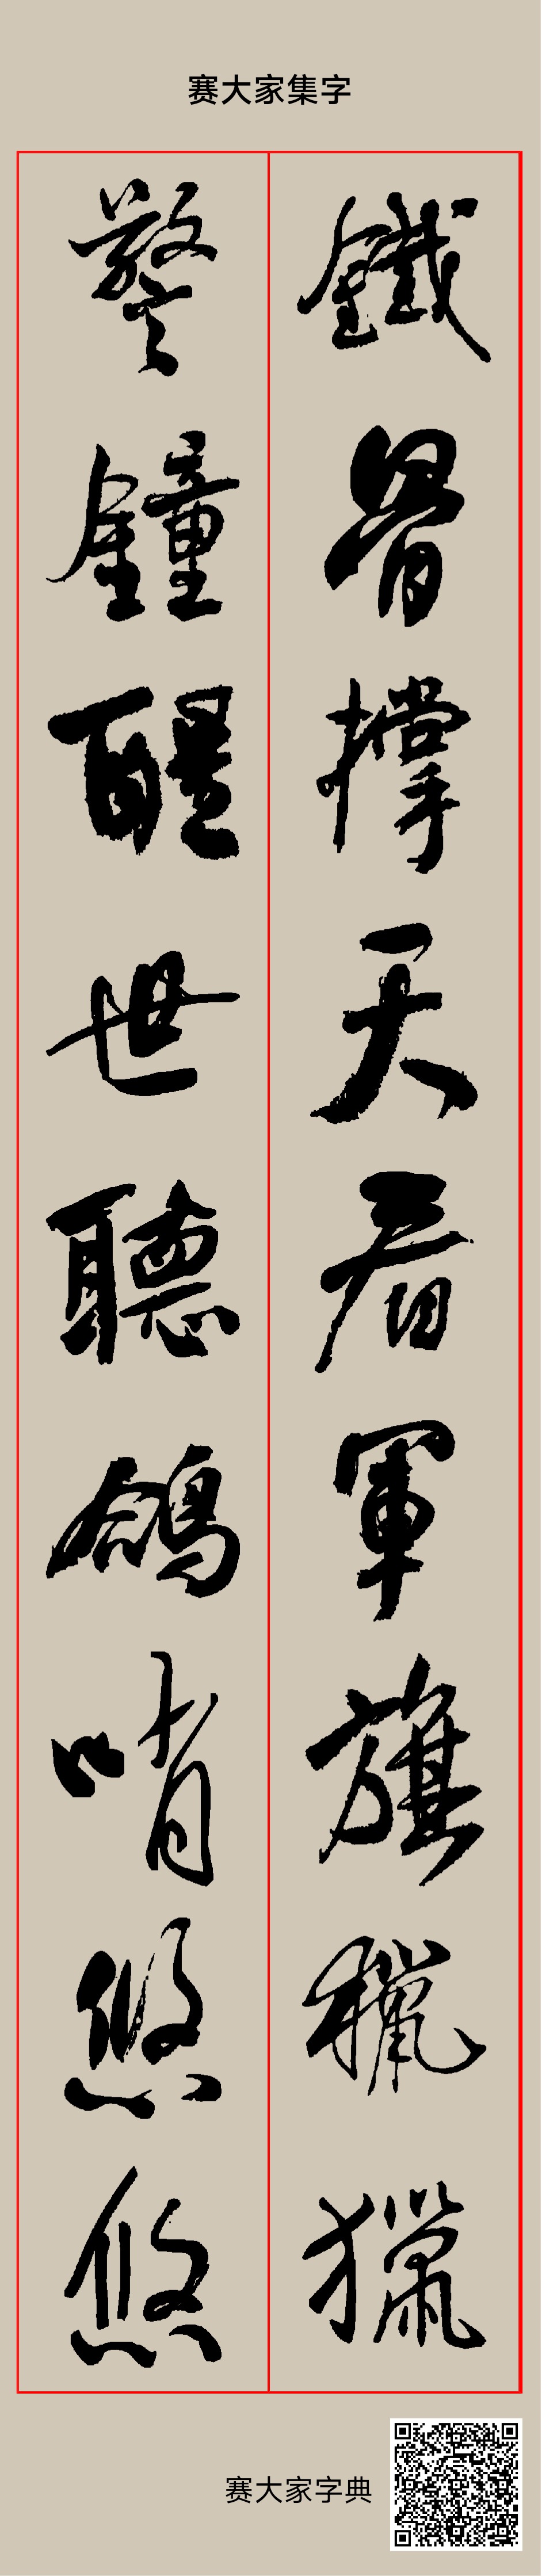 赛大家集字
鐵骨撐天看軍旗獵獵
警鐘醒世聽鴿哨悠悠
赛大家字典